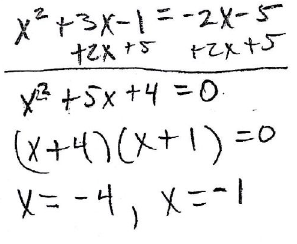 x² + 3x - 1 = -2x - 5
+2x + 5 +2x + 5
x² + 5x + 4 = 0
(x+4)(x+1) = 0
x = -4, x = -1